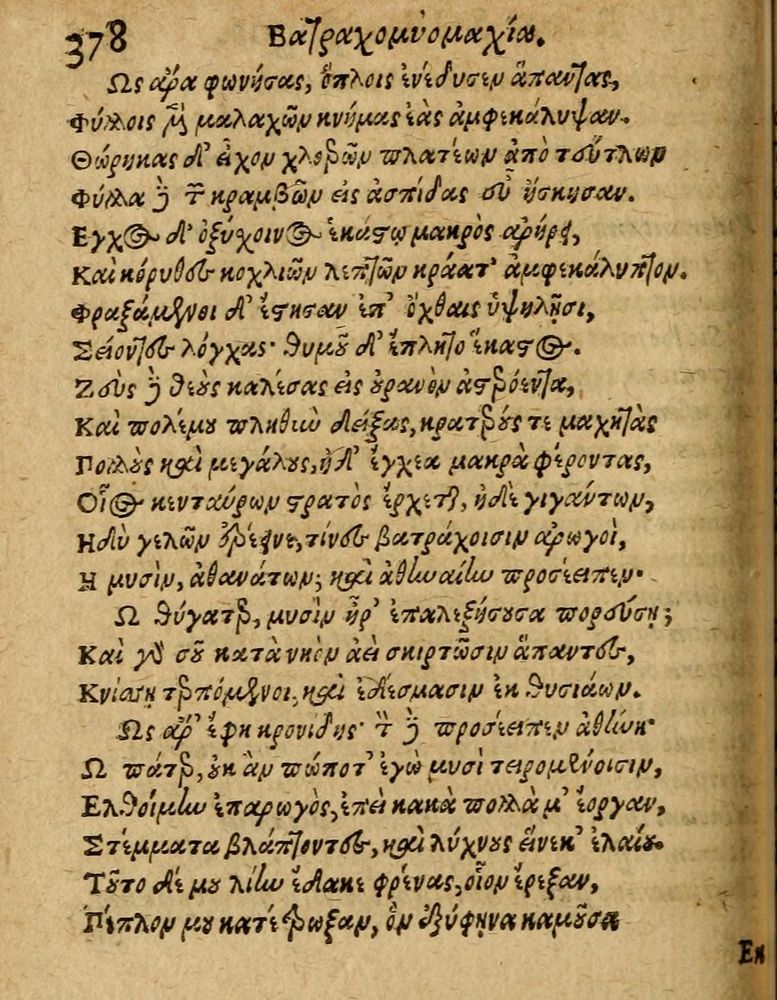 378 Βατραχομυομαχία.
Ως ἄρα φωνήσας, ὅπλοις ἐνέδυσεν ἅπαντας,
Φύλλοις μὲν μαλαχῶν κνήμας ἑὰς ἀμφεκάλυψαν.
Θώρηκας δ' εἶχον χλοερῶν πλατέων ἀπὸ τεύτλων
Φύλλα δὲ τῶν κραμβῶν εἰς ἀσπίδας εὖ ἤσκησαν.
Εγχος δ' ὀξύσχοινος ἑκάστῳ μακρὸς ἀρήρει,
Καὶ κόρυθες κοχλιῶν λεπτῶν κράατ' ἀμφεκάλυπτον.
Φραξάμενοι δ' ἔστησαν ἐπ' ὄχθαις ὑψηλῇσι,
Σείοντες λόγχας· θυμοῦ δ' ἔπλητο ἕκαστος.
Ζεὺς δὲ θεοὺς καλέσας εἰς οὐρανὸν ἀστερόεντα,
Καὶ πολέμου πληθὺν δείξας, κρατερούς τε μαχητὰς
Πολλοὺς καὶ μεγάλους, ἠδ' ἔγχεα μακρὰ φέροντας,
Οἷος κενταύρων στρατὸς ἔρχεται, ἠδὲ γιγάντων,
Ηδὺ γελῶν ἐρέεινε, τίνες βατράχοισιν ἀρωγοὶ,
Η μυσὶν, ἀθανάτων; καὶ ἀθηναίην προσέειπεν·
Ω θύγατερ, μυσὶν ἦρ' ἐπαλεξήσουσα πορεύσῃ;
Καὶ γὰρ σοῦ κατὰ νηὸν ἀεὶ σκιρτῶσιν ἅπαντες,
Κνίσσῃ τερπόμενοι, καὶ ἐδέσμασιν ἐκ θυσιάων.
Ως ἄρ' ἔφη κρονίδης· τὸν δὲ προσέειπεν ἀθήνη·
Ω πάτερ, οὐκ ἂν πώποτ' ἐγὼ μυσὶ τειρομένοισιν,
Ελθοίμην ἐπαρωγὸς, ἐπεὶ κακὰ πολλὰ μ' ἔοργαν,
Στέμματα βλάπτοντες, καὶ λύχνους εἵνεκ' ἐλαίου.
Τοῦτο δέ μου λίην ἔδακε φρένας, οἷον ἔρεξαν,
Πέπλον μου κατέτρωξαν, ὃν ἐξύφηνα καμοῦσα
Εκ